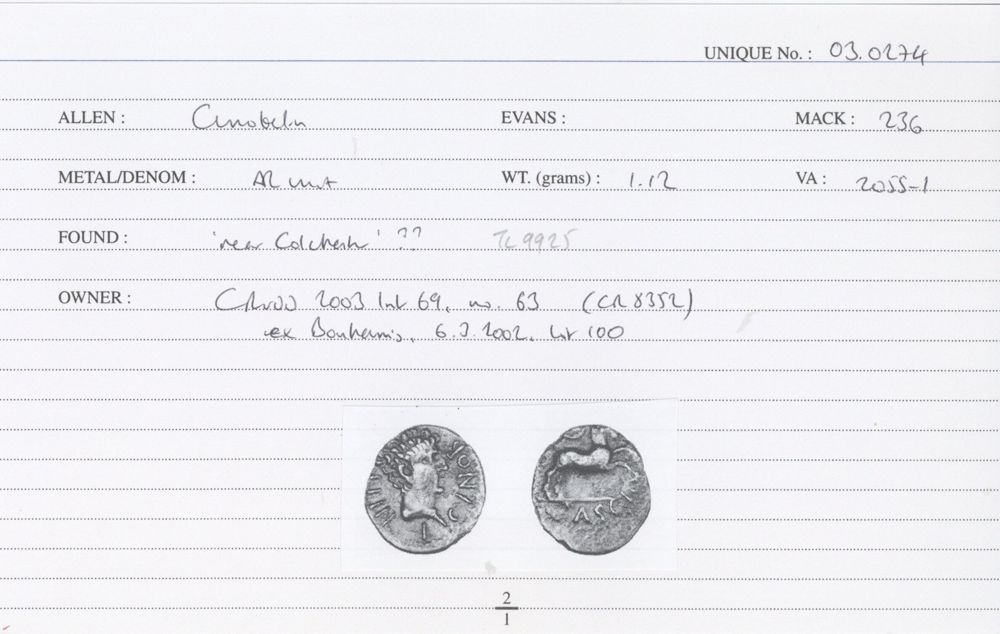 UNIQUE No. : 03.0274
ALLEN : Cunobelin EVANS : MACK : 236
METAL/DENOM : AR unit WT. (grams) : 1.12 VA : 2055-1
FOUND : 'near Colchester' ?? TL 9925
OWNER : 2003 list 69, no. 63 (CR 8352)
ex Bonhams, 6.3.2002, lot 100
ASCI
2
1